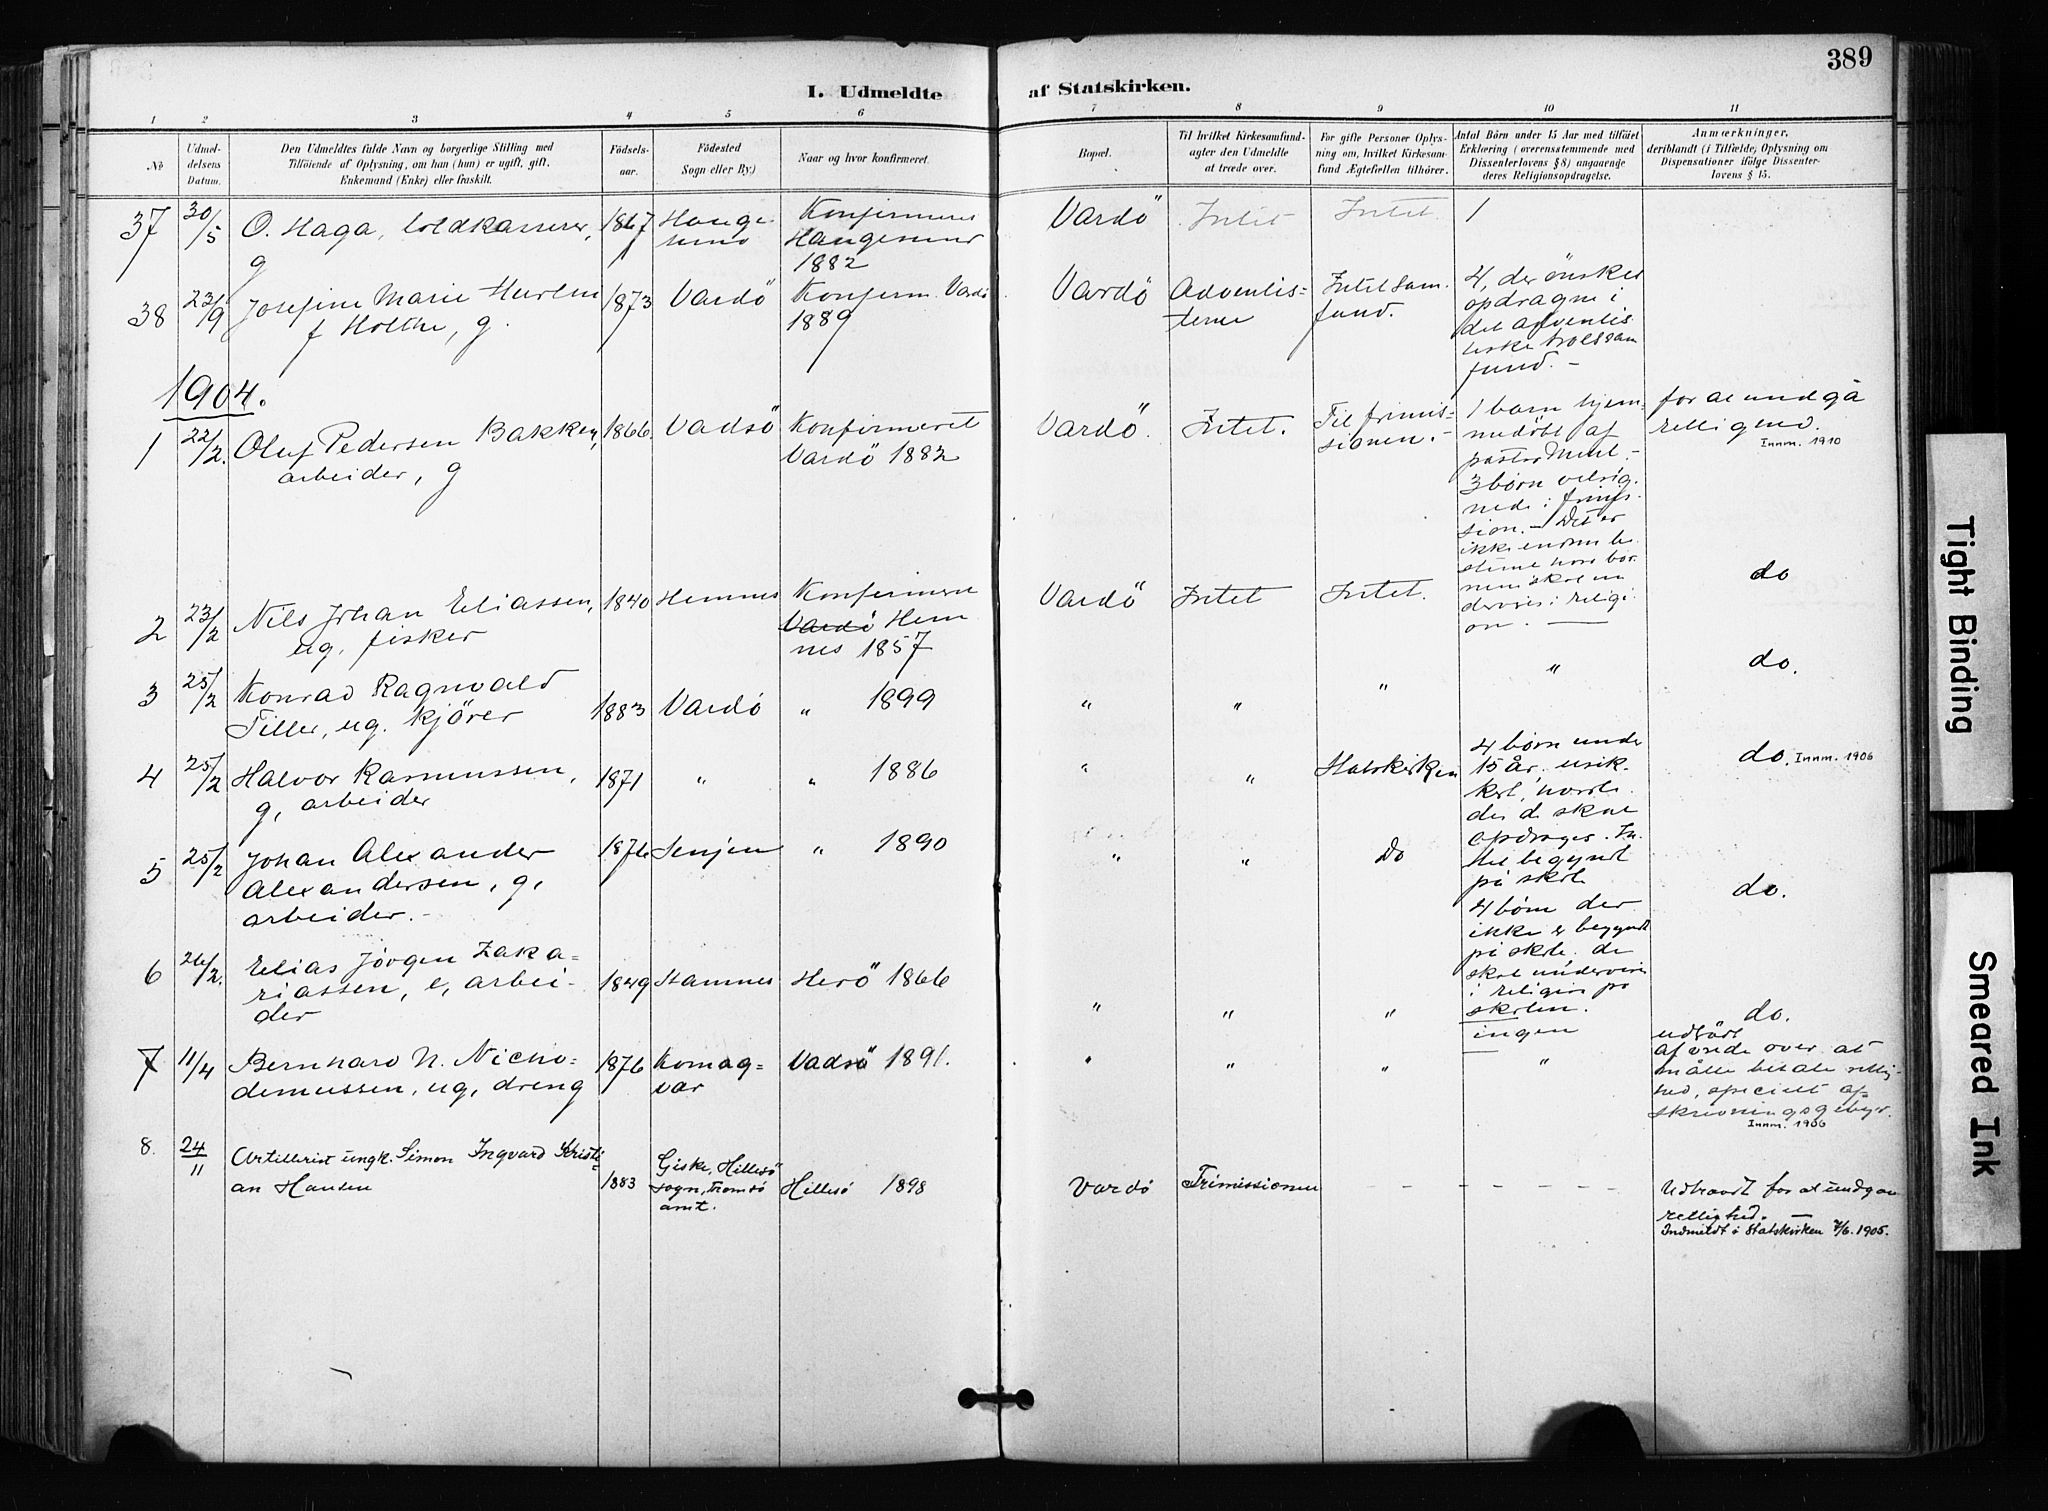 389
I. Udmeldte af Statskirken.
1 2 3 4 5 6 7 8 9 10 11
No
Udmeldelsens Datum.
Den Udmeldtes fulde Navn og borgerlige Stilling med
Tilföiende af Oplysning, om han (hun) er ugift, gift,
Enkemand (Enke) eller fraskilt.
Födselsaar.
Födested
Sogn eller By.)
Naar og hvor konfirmeret.
Bopæl.
Til hvilket Kirkesamfund-
agter den Udmeldte
at træde over.
For gifte Personer Oplys-
ning om, hvilket Kirkesam-
fund Ægtefællen tilhörer.
Antal Börn under 15 Aar med tilföiet
Erklæring (overensstemmende med
Dissenterlovens § 8) angaaende
deres Religionsopdragelse.
Anmærkninger,
deriblandt (i Tilfælde) Oplysning om
Dispensationer ifölge Dissenter-
lovens § 15.
37 30/5 O. Haga, toldkasserer, g 1867 Haugesund Konfirmeret Haugesund 1882 Vardö Intet Intet 1
38 23/9 Josefine Marie
f Holthe, g. 1873 Vardö Konfirm. Vardö 1889 Vardö Adventis-
terne Intet Sam
fund.
4, der ønskes
opdragne i
det adventis
tiske trossam
fund. -
1904.
1 22/2. Oluf Pedersen Bakken,
arbeider, g 1866 Vadsö Konfirmeret
Vardö 1882 Vardö. Intet. Til frimis-
sionen. -
1 barn hjem-
medöbt af
pastor -
3 børn velsig
nede i frimis-
sion. - Det er
ikke endnu be
stemt hvor bør
nene skal un
dervises i religi
on.
for at undgå
religied.
Innm. 1910
2 23/2 Nils Johan Eliassen,
ug. fisker 1840 Hemnes Konfirmeret
Vardö Hem
nes 1857 Vardö Intet Intet. do
3 25/2 Konrad Ragnvald
Tiller, ug. kjörer 1883 Vardö " 1899 " " " " do.
4 25/2 Halvor Rasmussen,
g, arbeider 1871 " " 1886 " " Statskirken
4 børn under
15 år, usik-
kert, hvorle-
des de skal
opdrages. In
tet begyndt
på skole
do. Innm. 1906
5 25/2 Johan Alexander
Alexandersen, g,
arbeider. - 1876 Senjen " 1890 " " Do
4 børn der
ikke er begyndt
på skole. de
skal undervises
i religion på
skolen.
do.
6 26/2. Elias Jörgen Zaka-
riassen, e, arbei-
der 1849 Stamnes Herö 1866 " " " ingen do.
7 11/4 Bernhard N. Nicho-
demussen, ug, dreng 1876 Komag-
vær Vadsö 1891. " " " "
udfört
af vrede over at
måtte betale rettig-
hed, specielt af
skrivningsgebyr.
Innm. 1906
8. 24/11 Artillerist ungk. Simon Ingvard Kristi-
an Hansen 1883 Giske, Hillesö
sogn, Tromsö
amt. Hillesö 1898 Vardö Frimissionen - - - - - -
Udtraadt for at undgaa
rettighed. -
Indmeldt i Statskirken 7/6. 1905.
Tight Binding
Smeared Ink